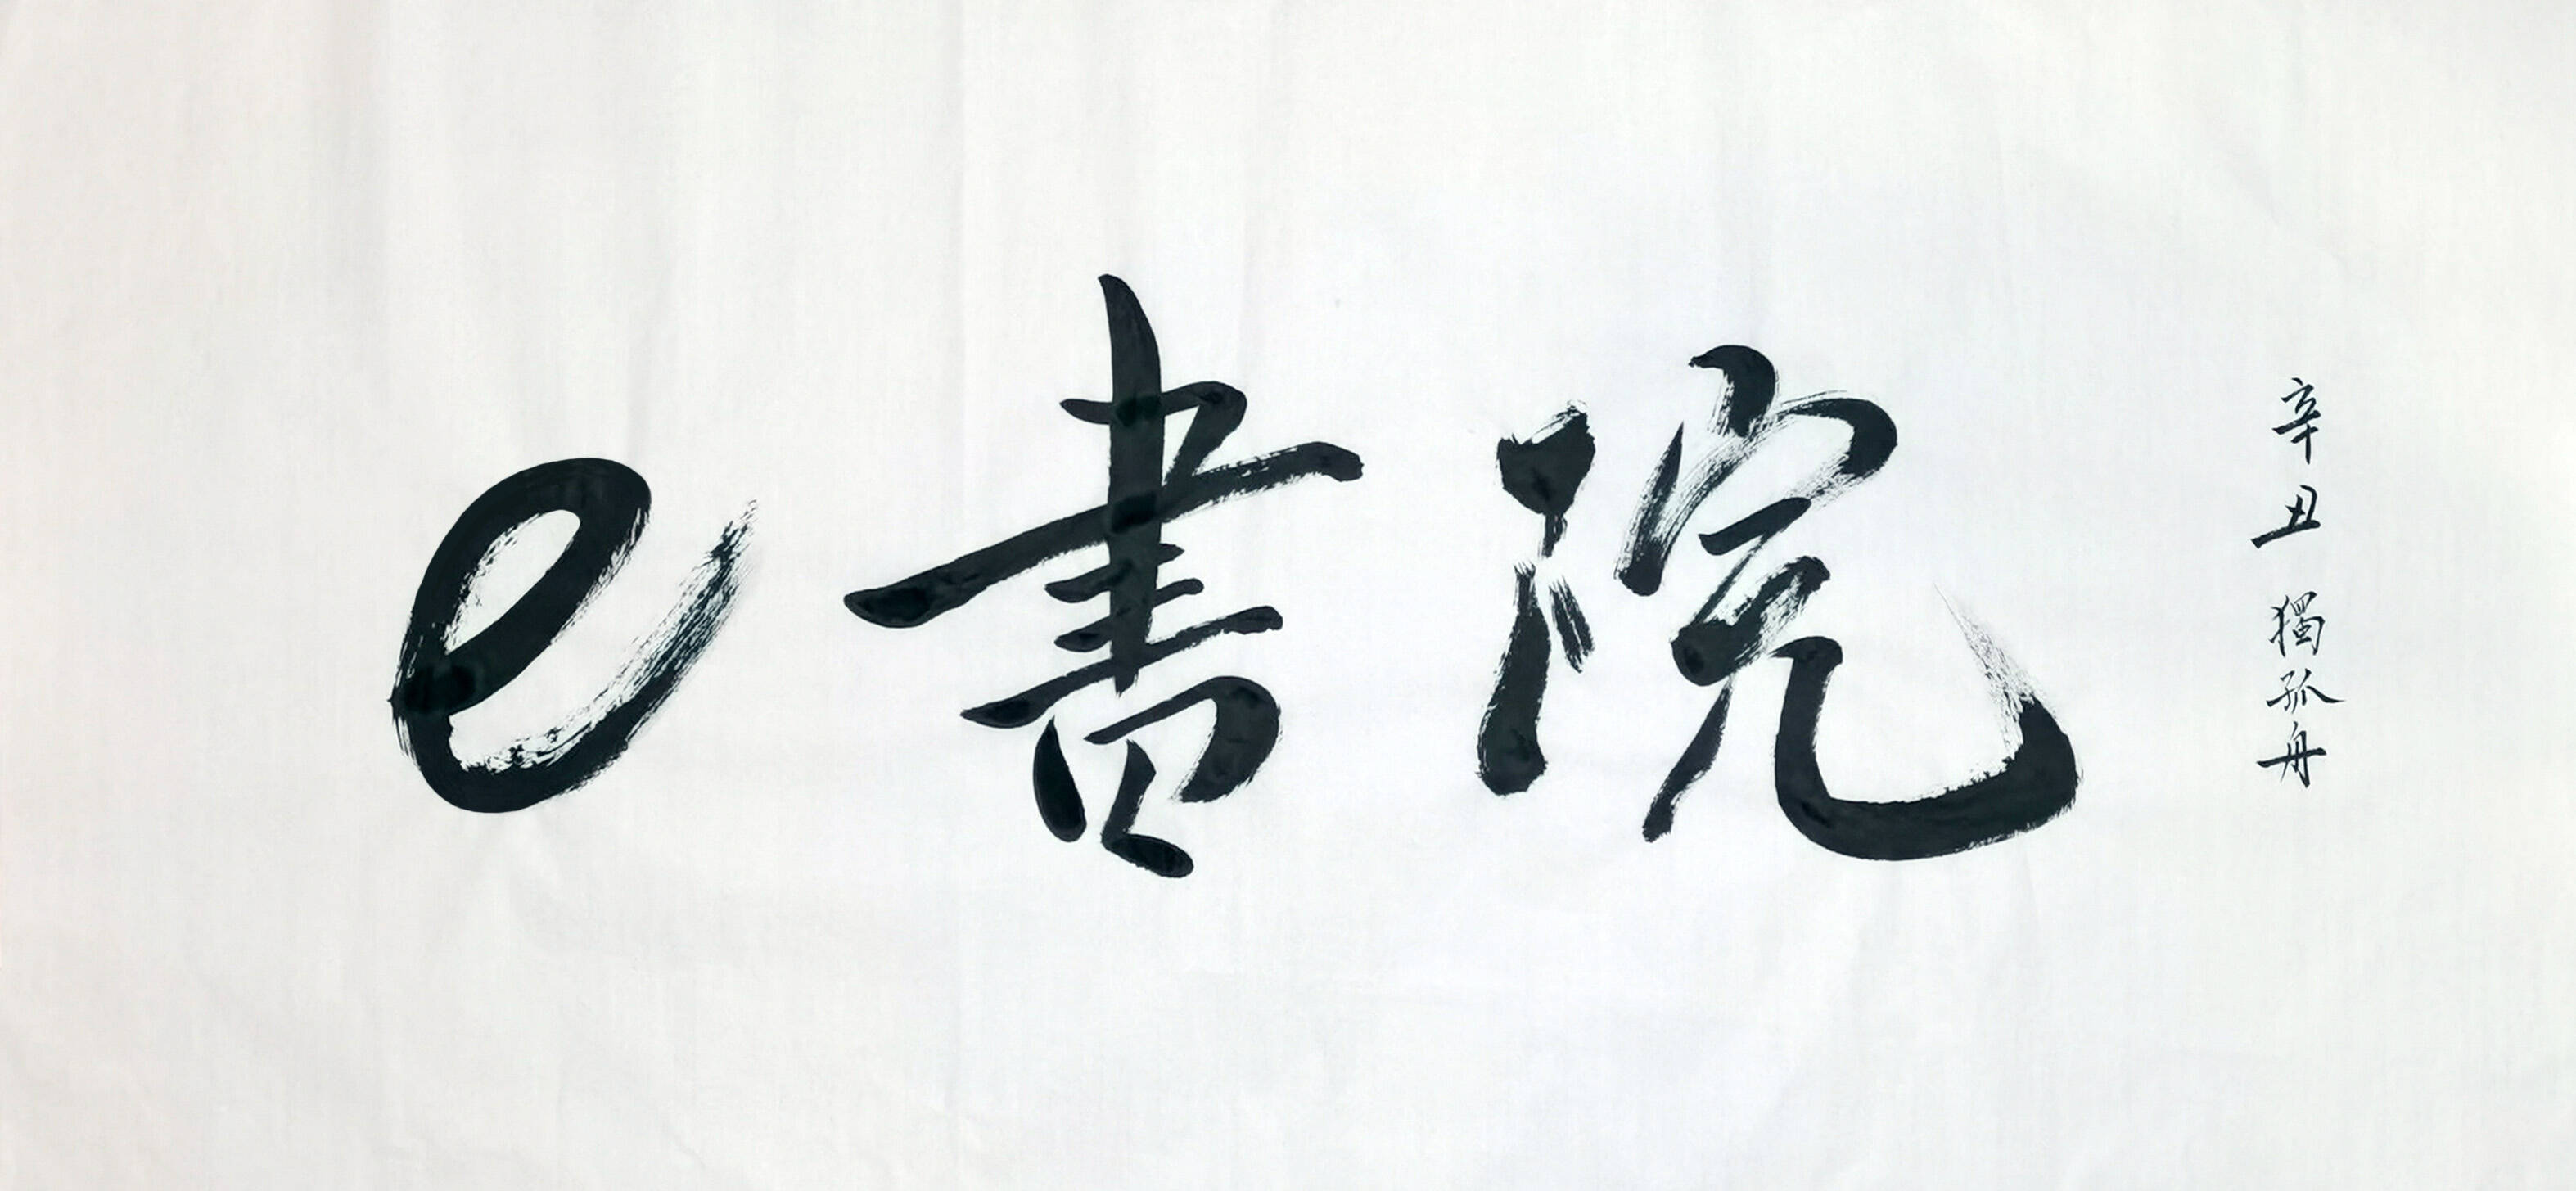 e書院
辛丑 獨孤舟